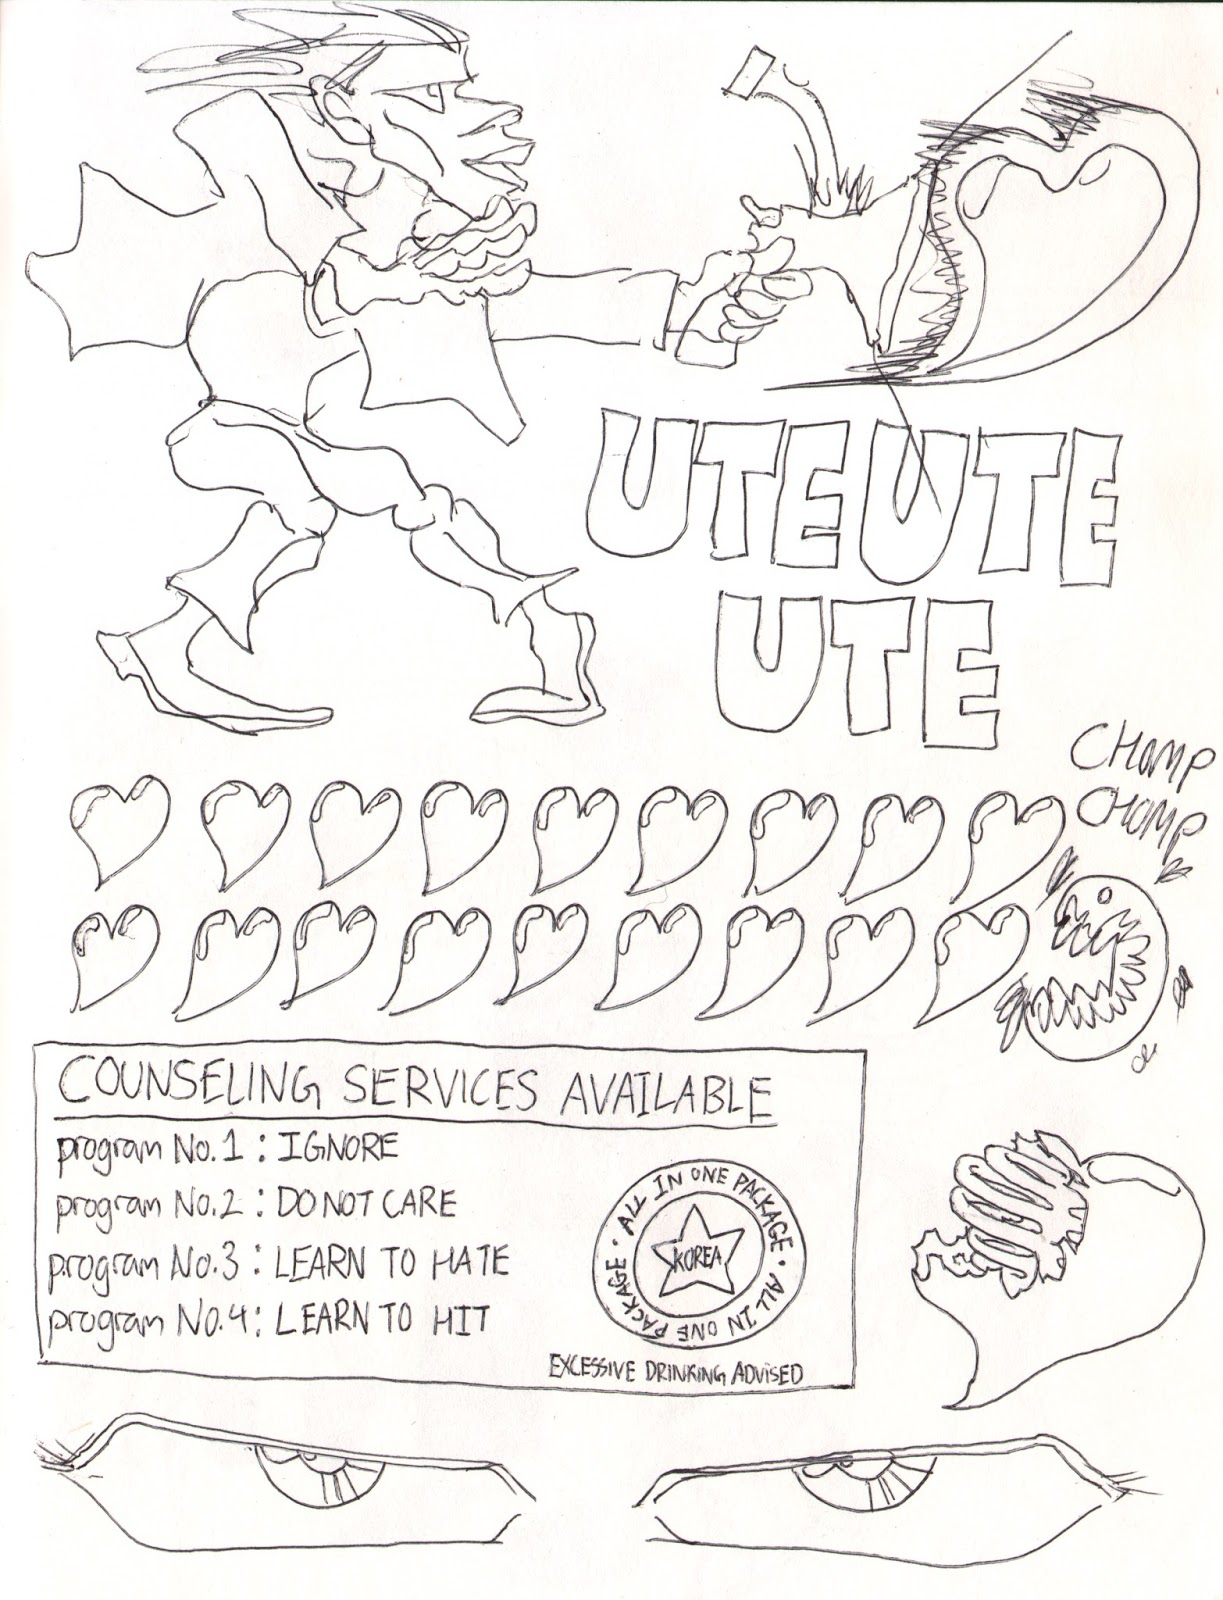 UTEUTE
UTE
CHOMP
CHOMP
COUNSELING SERVICES AVAILABLE
program No.1: IGNORE
program No.2: DO NOT CARE
program No.3: LEARN TO HATE
program No.4: LEARN TO HIT
ALL IN ONE PACKAGE • ALL IN ONE PACKAGE •
KOREA
EXCESSIVE DRINKING ADVISED